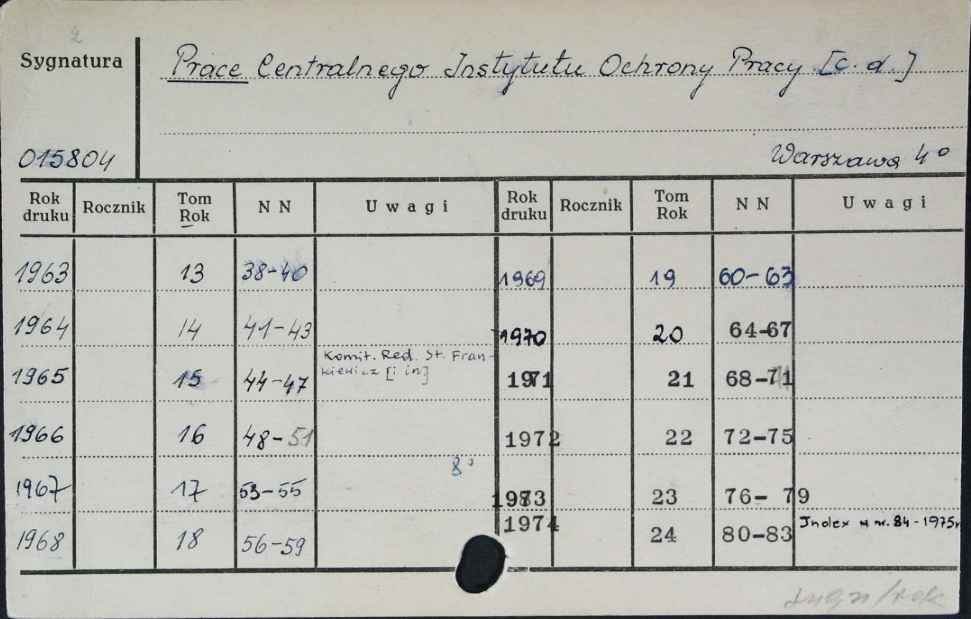 Sygnatura
Prace Centralnego Instytutu Ochrony Pracy [c. d.]
015804
Warszawa 4°
Rok druku Rocznik Tom Rok N N Uwagi Rok druku Rocznik Tom Rok N N Uwagi
1963 13 38-40 1969 19 60-63
1964 14 41-43 1970 20 64-67
Komit. Red. St. Fran-
kiewicz [i in]
1965 15 44-47 1971 21 68-71
1966 16 48-51 1972 22 72-75
8°
1967 17 53-55 1973 23 76-79
1968 18 56-59 1974 24 80-83 Index w nr. 84-1975r